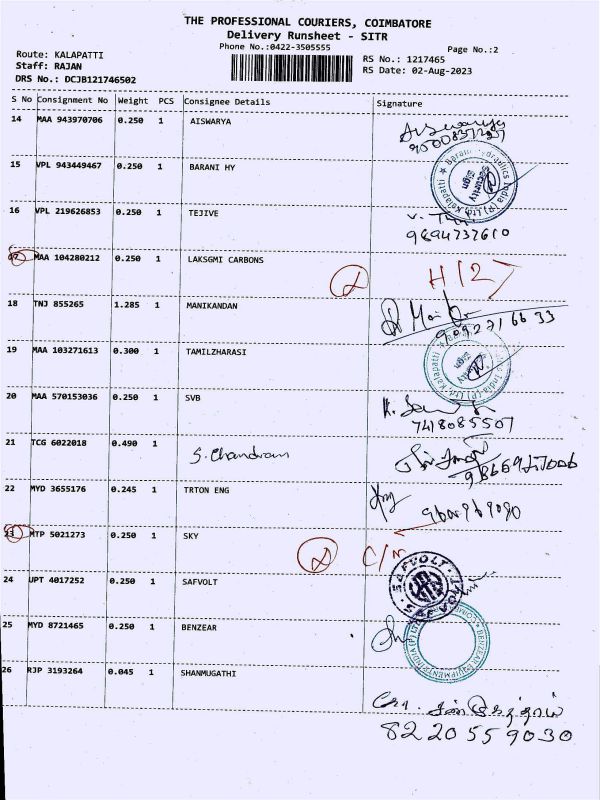 THE PROFESSIONAL COURIERS, COIMBATORE
Delivery Runsheet - SITR
Phone No.:0422-3505555
Page No.:2
Route: KALAPATTI
Staff: RAJAN
DRS No.: DCJB121746502
RS No.: 1217465
RS Date: 02-Aug-2023
S No Consignment No Weight PCS Consignee Details Signature
14 MAA 943970706 0.250 1 AISWARYA
15 VPL 943449467 0.250 1 BARANI HY
Security Sign
16 VPL 219626853 0.250 1 TEJIVE
9894737610
17 MAA 104280212 0.250 1 LAKSGMI CARBONS
18 TNJ 855265 1.285 1 MANIKANDAN
9092716633
19 MAA 103271613 0.300 1 TAMILZHARASI
20 MAA 570153036 0.250 1 SVB
7418085507
21 TCG 6022018 0.490 1 S. Chandram
22 MYD 3655176 0.245 1 TRTON ENG
23 MTP 5021273 0.250 1 SKY
C/N
24 UPT 4017252 0.250 1 SAFVOLT
SAFVOLT
25 MYD 8721465 0.250 1 BENZEAR
26 RJP 3193264 0.045 1 SHANMUGATHI
8220559030